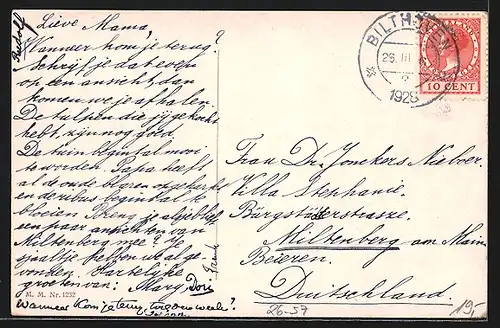 Rudolf
Lieve Mama,
Wanneer kom je terug?
Schrijf je dat even
op een ansicht, dan
komen we je afhalen.
De tulpen die jij gekocht
hebt, zijn nog goed.
De tuin begint al mooi
te worden. Papa heeft
al de onde blaren opgeharkt
en de ribus begint al te
bloeien. Breng je alsjeblieft
een paar ansichten van
Miltenberg mee? Je
sjaaltje hebben we al ge-
vonden. Hartelijke
groeten van: Mary Dori
Wanneer kom je terug
M. M. Nr. 1232
BILTHOVEN
26. III
1928
10 CENT
Frau Dr. Jonkers Nieboer.
Villa Stephanie.
Bürgstädterstrasze.
Miltenberg am Main
Beieren.
Duitschland.
26-57
19,-